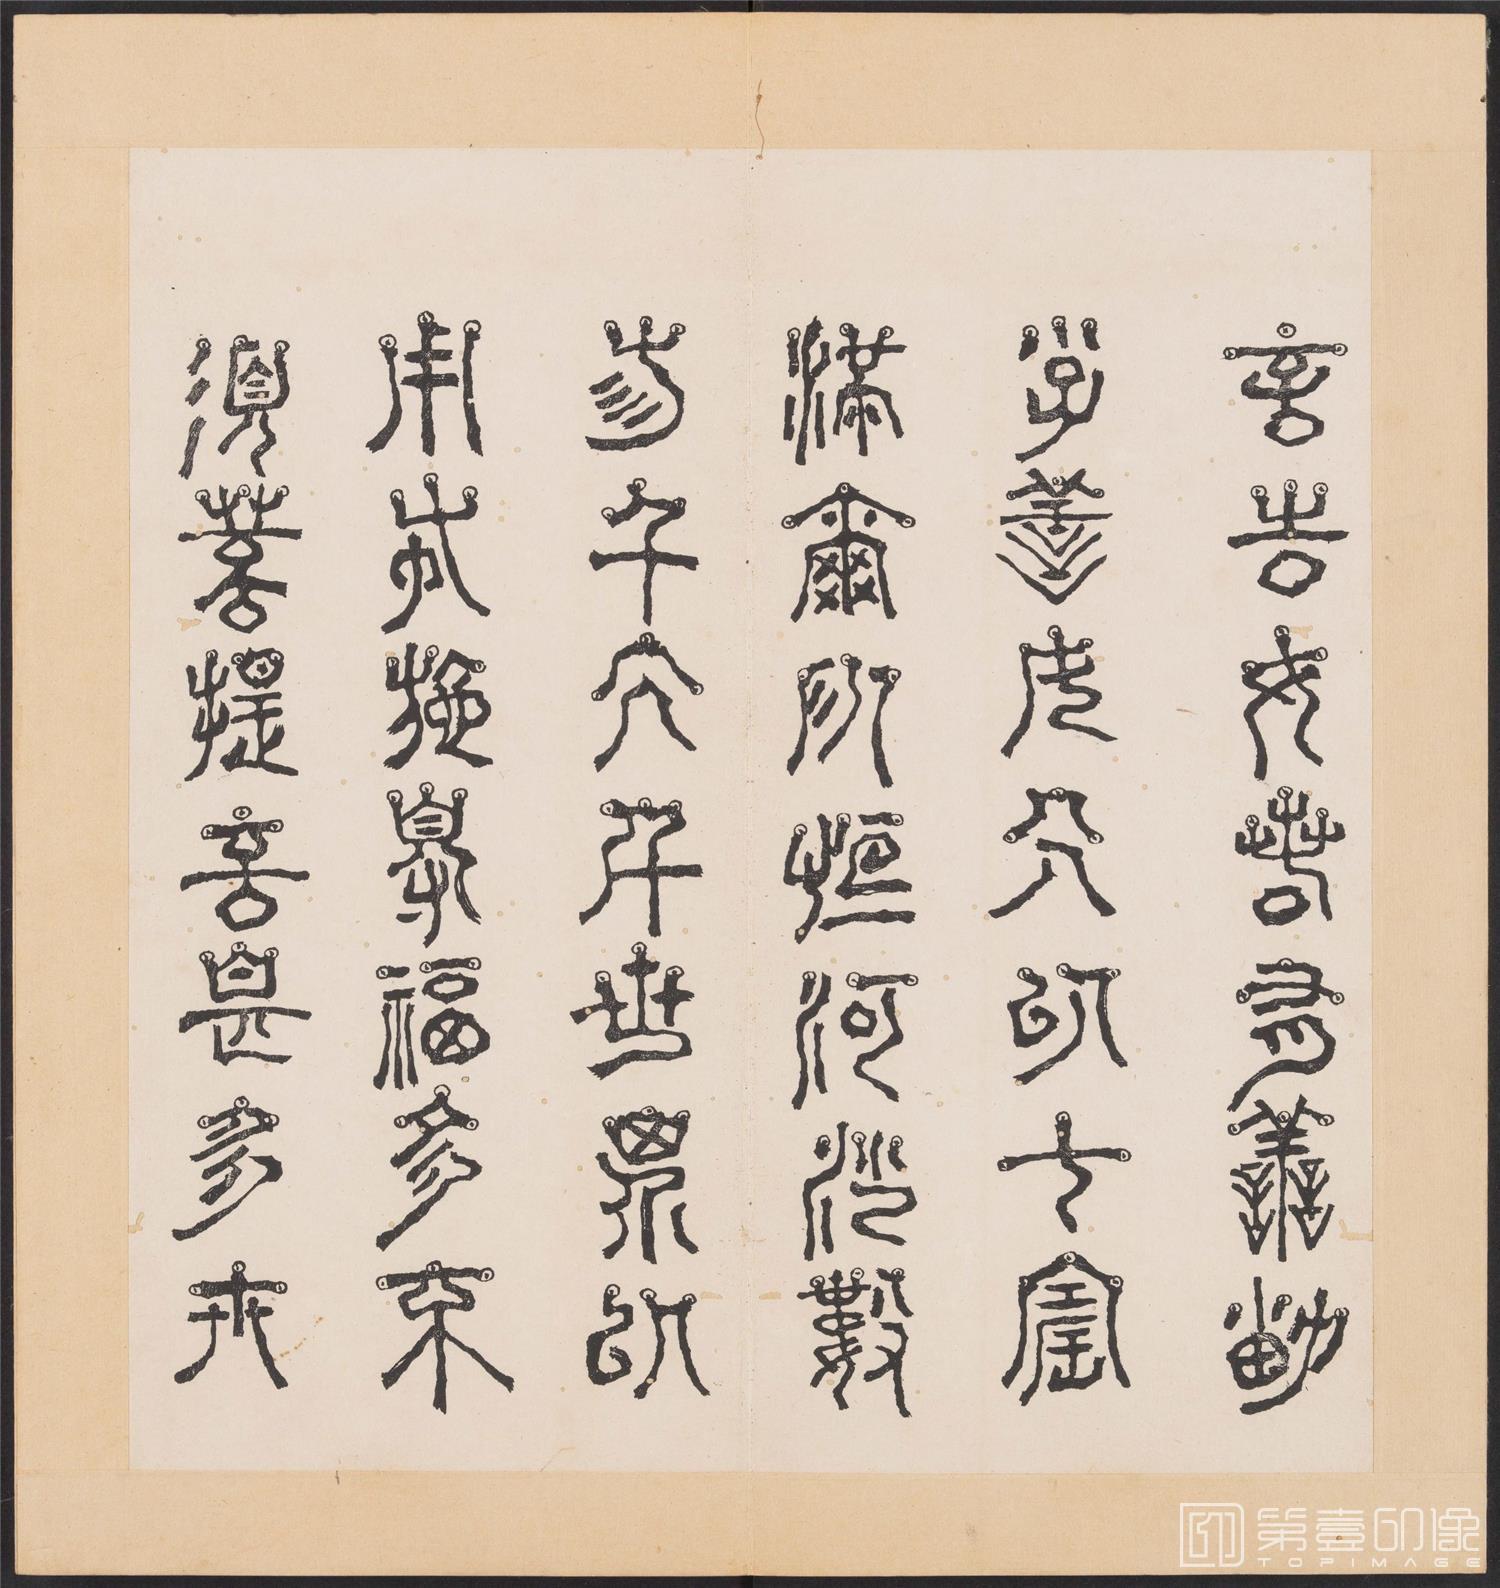 言告女若有善男
子善女人以七寶
滿爾所恒河沙數
三千大千世界以
用布施得福多不
須菩提言甚多世
第壹印像
TOPIMAGE